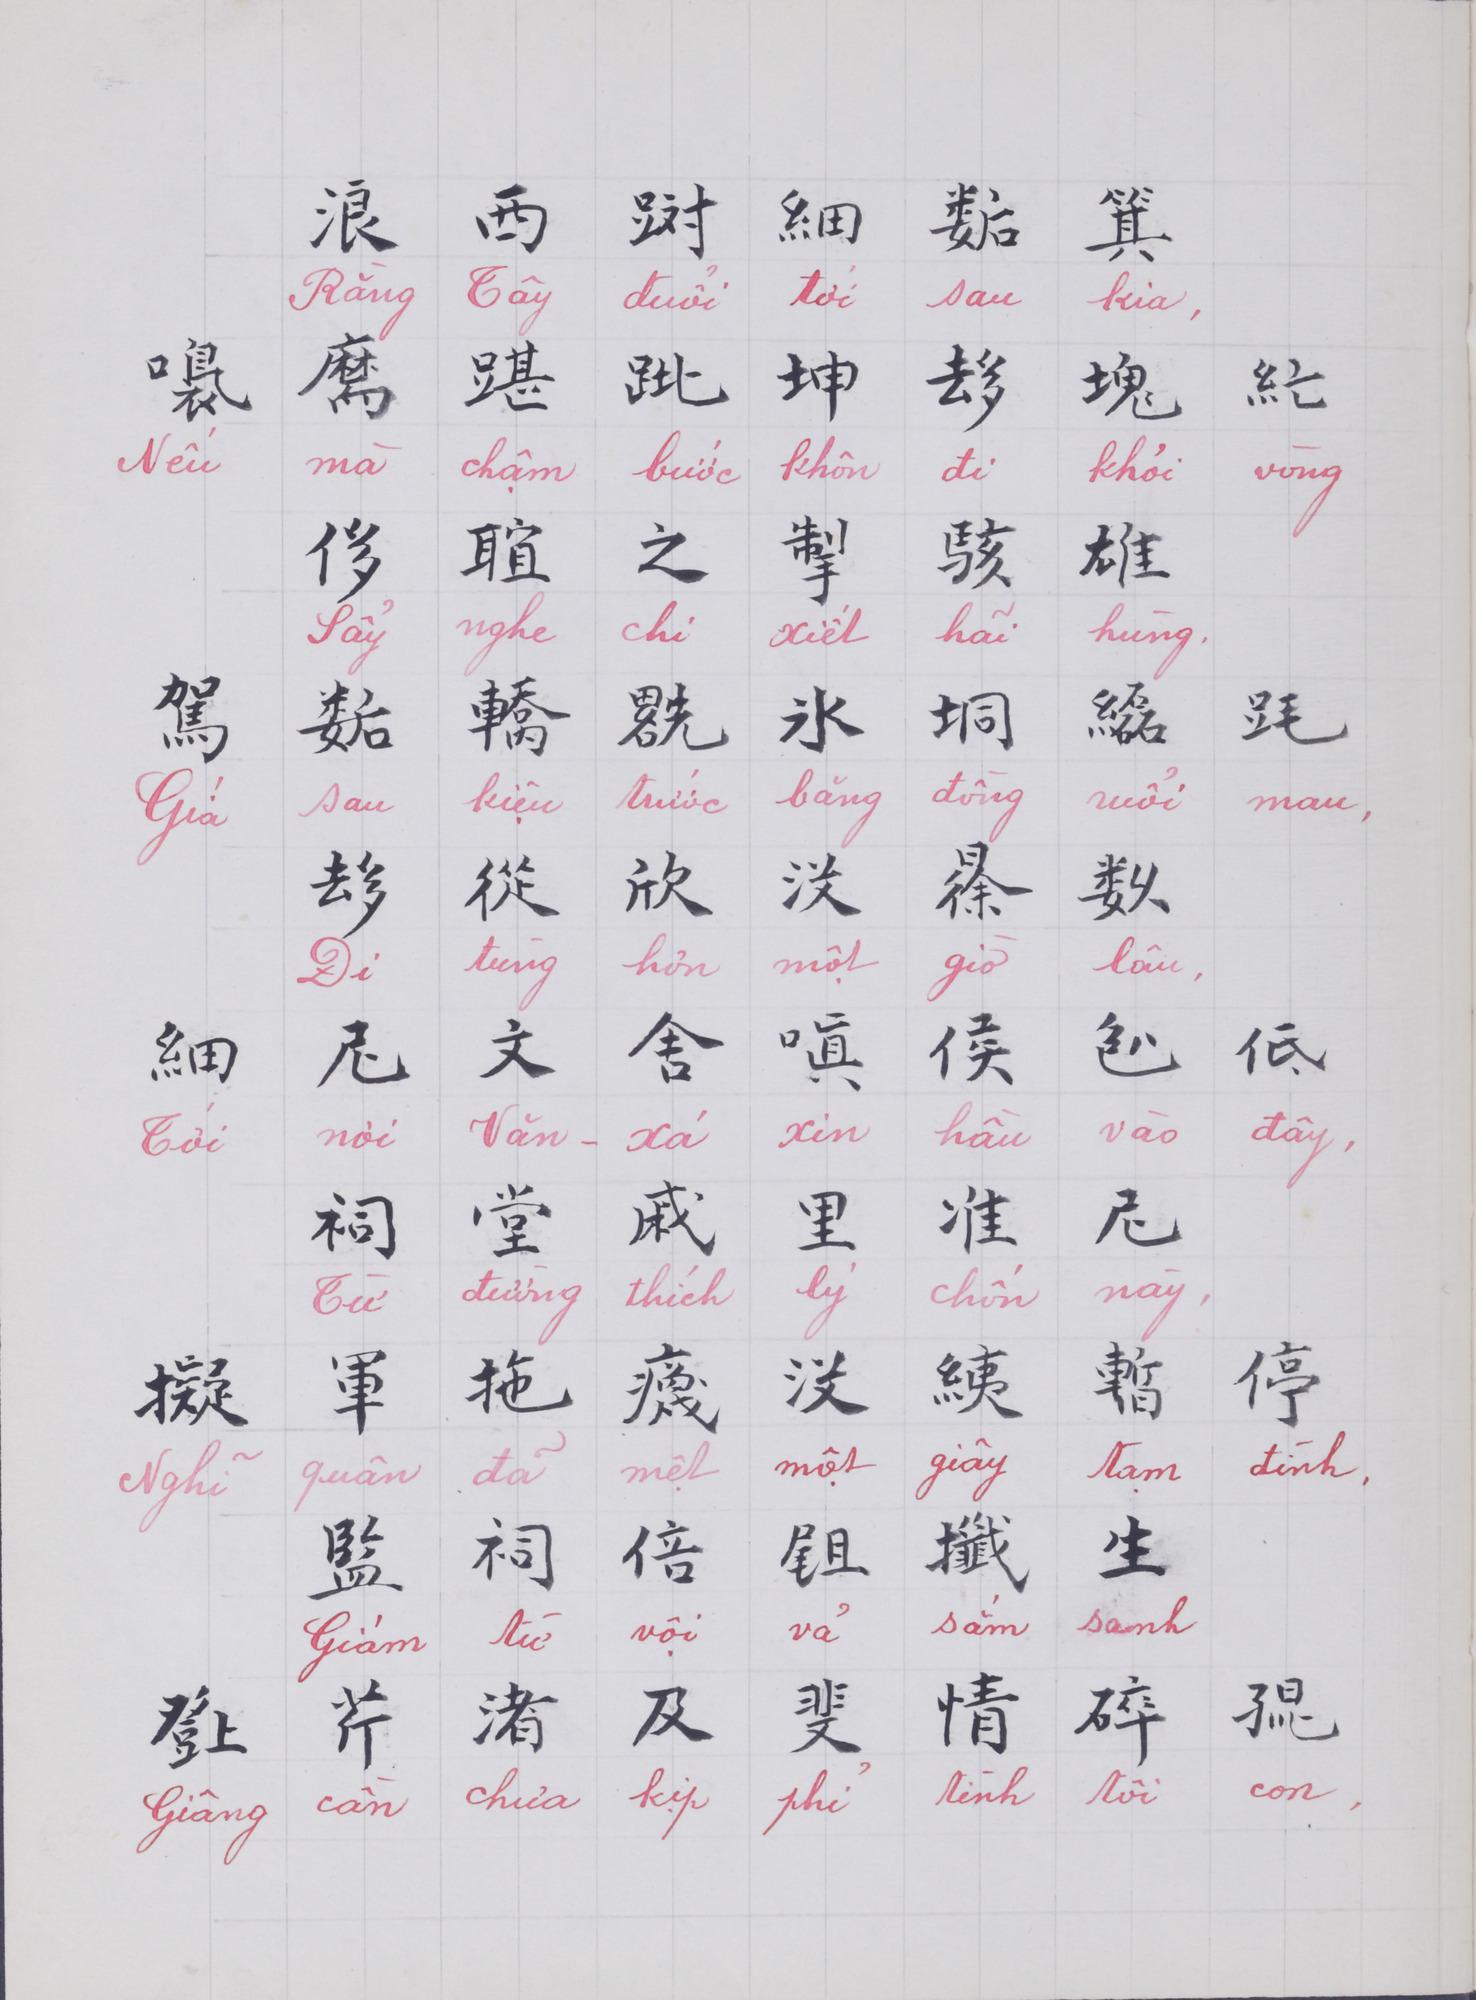 浪 西 𨀎 細 𢖖 箕
Rằng Tây đuổi tới sau kia,
㗂 麿 踸 𨀈 坤 𠫾 塊 紅
Nếu mà chậm bước khôn đi khỏi vòng
侈 𦖑 之 掣 駭 雄
Sẩy nghe chi xiết hãi hùng.
駕 𢖖 轎 𠓀 氷 垌 𦇒 𨖧
Giá sau kiệu trước băng đồng ruổi mau,
𠫾 從 欣 沒 𣉹 数
Đi tùng hơn một giờ lâu,
細 尼 文 舍 嗔 侯 𠓨 低
Tới nơi Văn-xá xin hầu vào đây,
祠 堂 戚 里 准 尼
Từ đường thích lý chốn này,
擬 軍 拖 𤻻 沒 𦀊 暫 停
Nghĩ quân đã mệt một giây tạm đình,
監 祠 倍 𡲤 攕 生
Giám từ vội vả sắm sanh
𤼸 芹 渚 及 斐 情 碎 𡥵
Giâng cần chưa kịp phỉ tình tôi con,